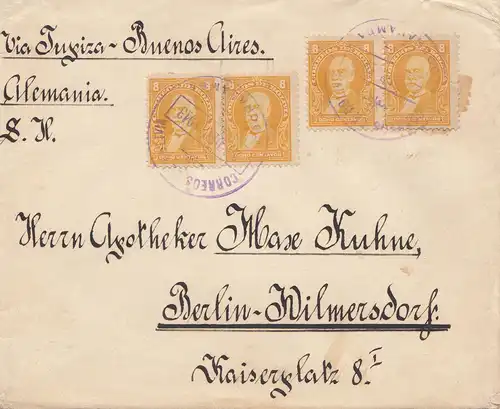 Via Tupiza - Buenos Aires.
Alemania.
S. H.
8 8
8 8
CORREOS
Herrn Apotheker Max Kuhne,
Berlin-Wilmersdorf.
Kaiserplatz 8.I